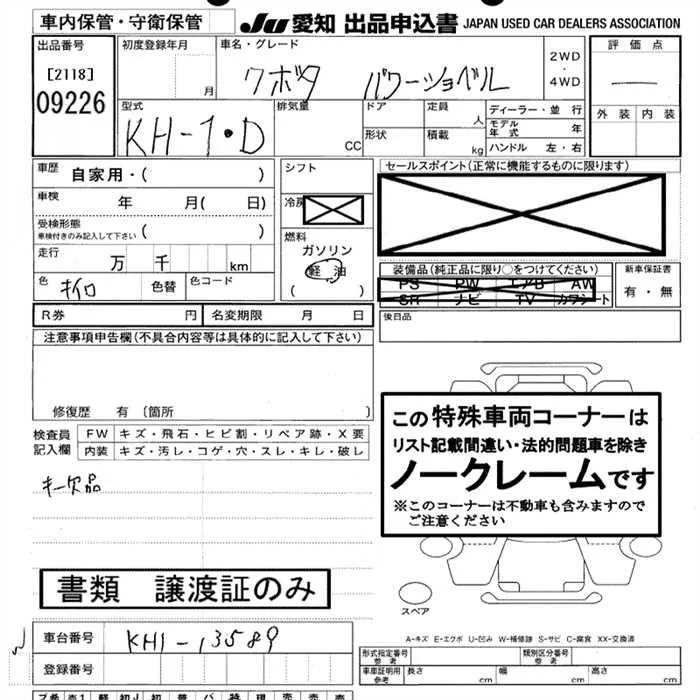 車内保管・守衛保管
JU 愛知 出品申込書 JAPAN USED CAR DEALERS ASSOCIATION
出品番号 初度登録年月 車名・グレード 2WD・4WD 評価点
[2118] 月 クボタ パワーショベル
09226
型式 排気量 ドア 定員 人 ディーラー・並行 外装 内装
KH-1・D CC 形状 積載 kg モデル年式 年
ハンドル 左・右
車歴 自家用・( ) シフト セールスポイント(正常に機能するものに限ります)
車検 年 月( 日) 冷房
受検形態 ( )
車検付きのみ記入して下さい
燃料
ガソリン
軽油
( )
走行 万 千 km
色 キイロ 色替 色コード
装備品(純品品に限り○をつけてください) 新車保証書
PS PW エアB AW 有・無
SR ナビ TV カワシート
R券 円 名変期限 月 日 後日品
注意事項申告欄(不具合内容等は具体的に記入して下さい)
修復歴 有 〔箇所
検査員記入欄 FW キズ・飛石・ヒビ割・リペア跡・X要
内装 キズ・汚レ・コゲ・穴・スレ・キレ・破レ
この特殊車両コーナーは
リスト記載間違い・法的問題車を除き
ノークレームです
※このコーナーは不動車も含みますので
ご注意ください
キー欠品
書類 譲渡証のみ
スペア
A-キズ E-エクボ U-凹み W-補修跡 S-サビ C-腐食 XX-交換済
車台番号 KH1-13589
登録番号
形式指定番号 参考 類別区分番号 参考
車庫証明用 参考 長さ cm 幅 cm 高さ cm